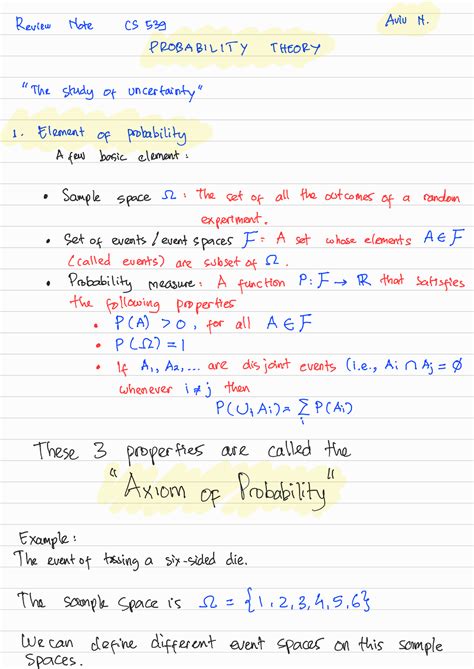 Review Note CS 539 Aviu N.
PROBABILITY THEORY
"The study of uncertainty"
1. Element of probability
A few basic element:
• Sample space Ω: The set of all the outcomes of a random
experiment.
• Set of events / event spaces F: A set whose elements A ∈ F
(called events) are subset of Ω.
• Probability measure: A function P: F → ℝ that satisfies
the following properties
• P(A) > 0, for all A ∈ F
• P(Ω) = 1
• If A₁, A₂, ... are disjoint events (i.e., Ai ∩ Aj = ∅
whenever i ≠ j then
P(∪i Ai) = Σi P(Ai)
These 3 properties are called the
"Axiom of Probability"
Example:
The event of tossing a six-sided die.
The sample space is Ω = {1, 2, 3, 4, 5, 6}
We can define different event spaces on this sample
spaces.